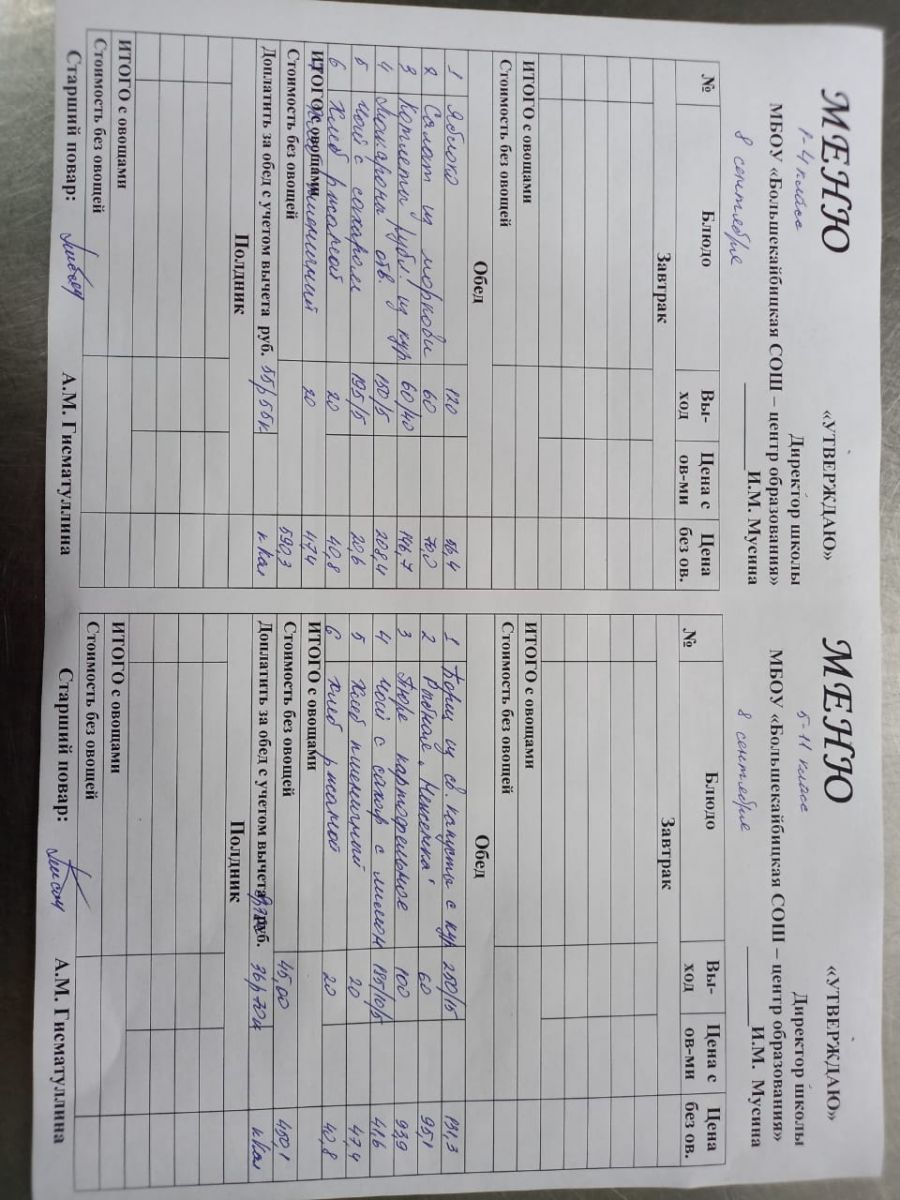 МЕНЮ «УТВЕРЖДАЮ»
1-4 класс Директор школы
МБОУ «Большекайбицкая СОШ – центр образования»
8 сентября И.М. Мусина
№ Блюдо Вы-ход Цена с ов-ми Цена без ов.
Завтрак
ИТОГО с овощами
Стоимость без овощей
Обед
1 Яблоко 120 56,4
2 Салат из моркови 60 70,0
3 Котлеты рубл. из кур 60/40 146,7
4 Макароны отв. 150/5 208,4
5 Чай с сахаром 195/5 20,6
6 Хлеб ржаной 20 40,8
ИТОГО с овощами пшеничный 20 47,4
Стоимость без овощей 590,3
Доплатить за обед с учетом вычета руб. 55р 55к ккал
Полдник
ИТОГО с овощами
Стоимость без овощей
Старший повар: А.М. Гисматуллина
МЕНЮ «УТВЕРЖДАЮ»
5-11 класс Директор школы
МБОУ «Большекайбицкая СОШ – центр образования»
8 сентября И.М. Мусина
№ Блюдо Вы-ход Цена с ов-ми Цена без ов.
Завтрак
ИТОГО с овощами
Стоимость без овощей
Обед
1 Борщ из св. капусты с кур 250/15 131,3
2 "Неженка" 60 95,1
3 Пюре картофельное 100 93,9
4 Чай с сахар с лимон 185/10/5 41,6
5 Хлеб пшеничный 20 47,4
6 Хлеб ржаной 20 40,8
ИТОГО с овощами
Стоимость без овощей 45,00 450,1
Доплатить за обед с учетом вычета руб. 36р 70к ккал
Полдник
ИТОГО с овощами
Стоимость без овощей
Старший повар: А.М. Гисматуллина